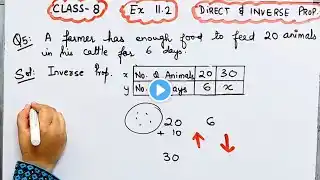 CLASS-8 Ex 11.2 DIRECT & INVERSE PROP.
Q5: A farmer has enough food to feed 20 animals
in his cattle for 6 days.
Sol: Inverse Prop. x No. of Animals 20 30
y No. ays 6 x
20 6
+ 10
30